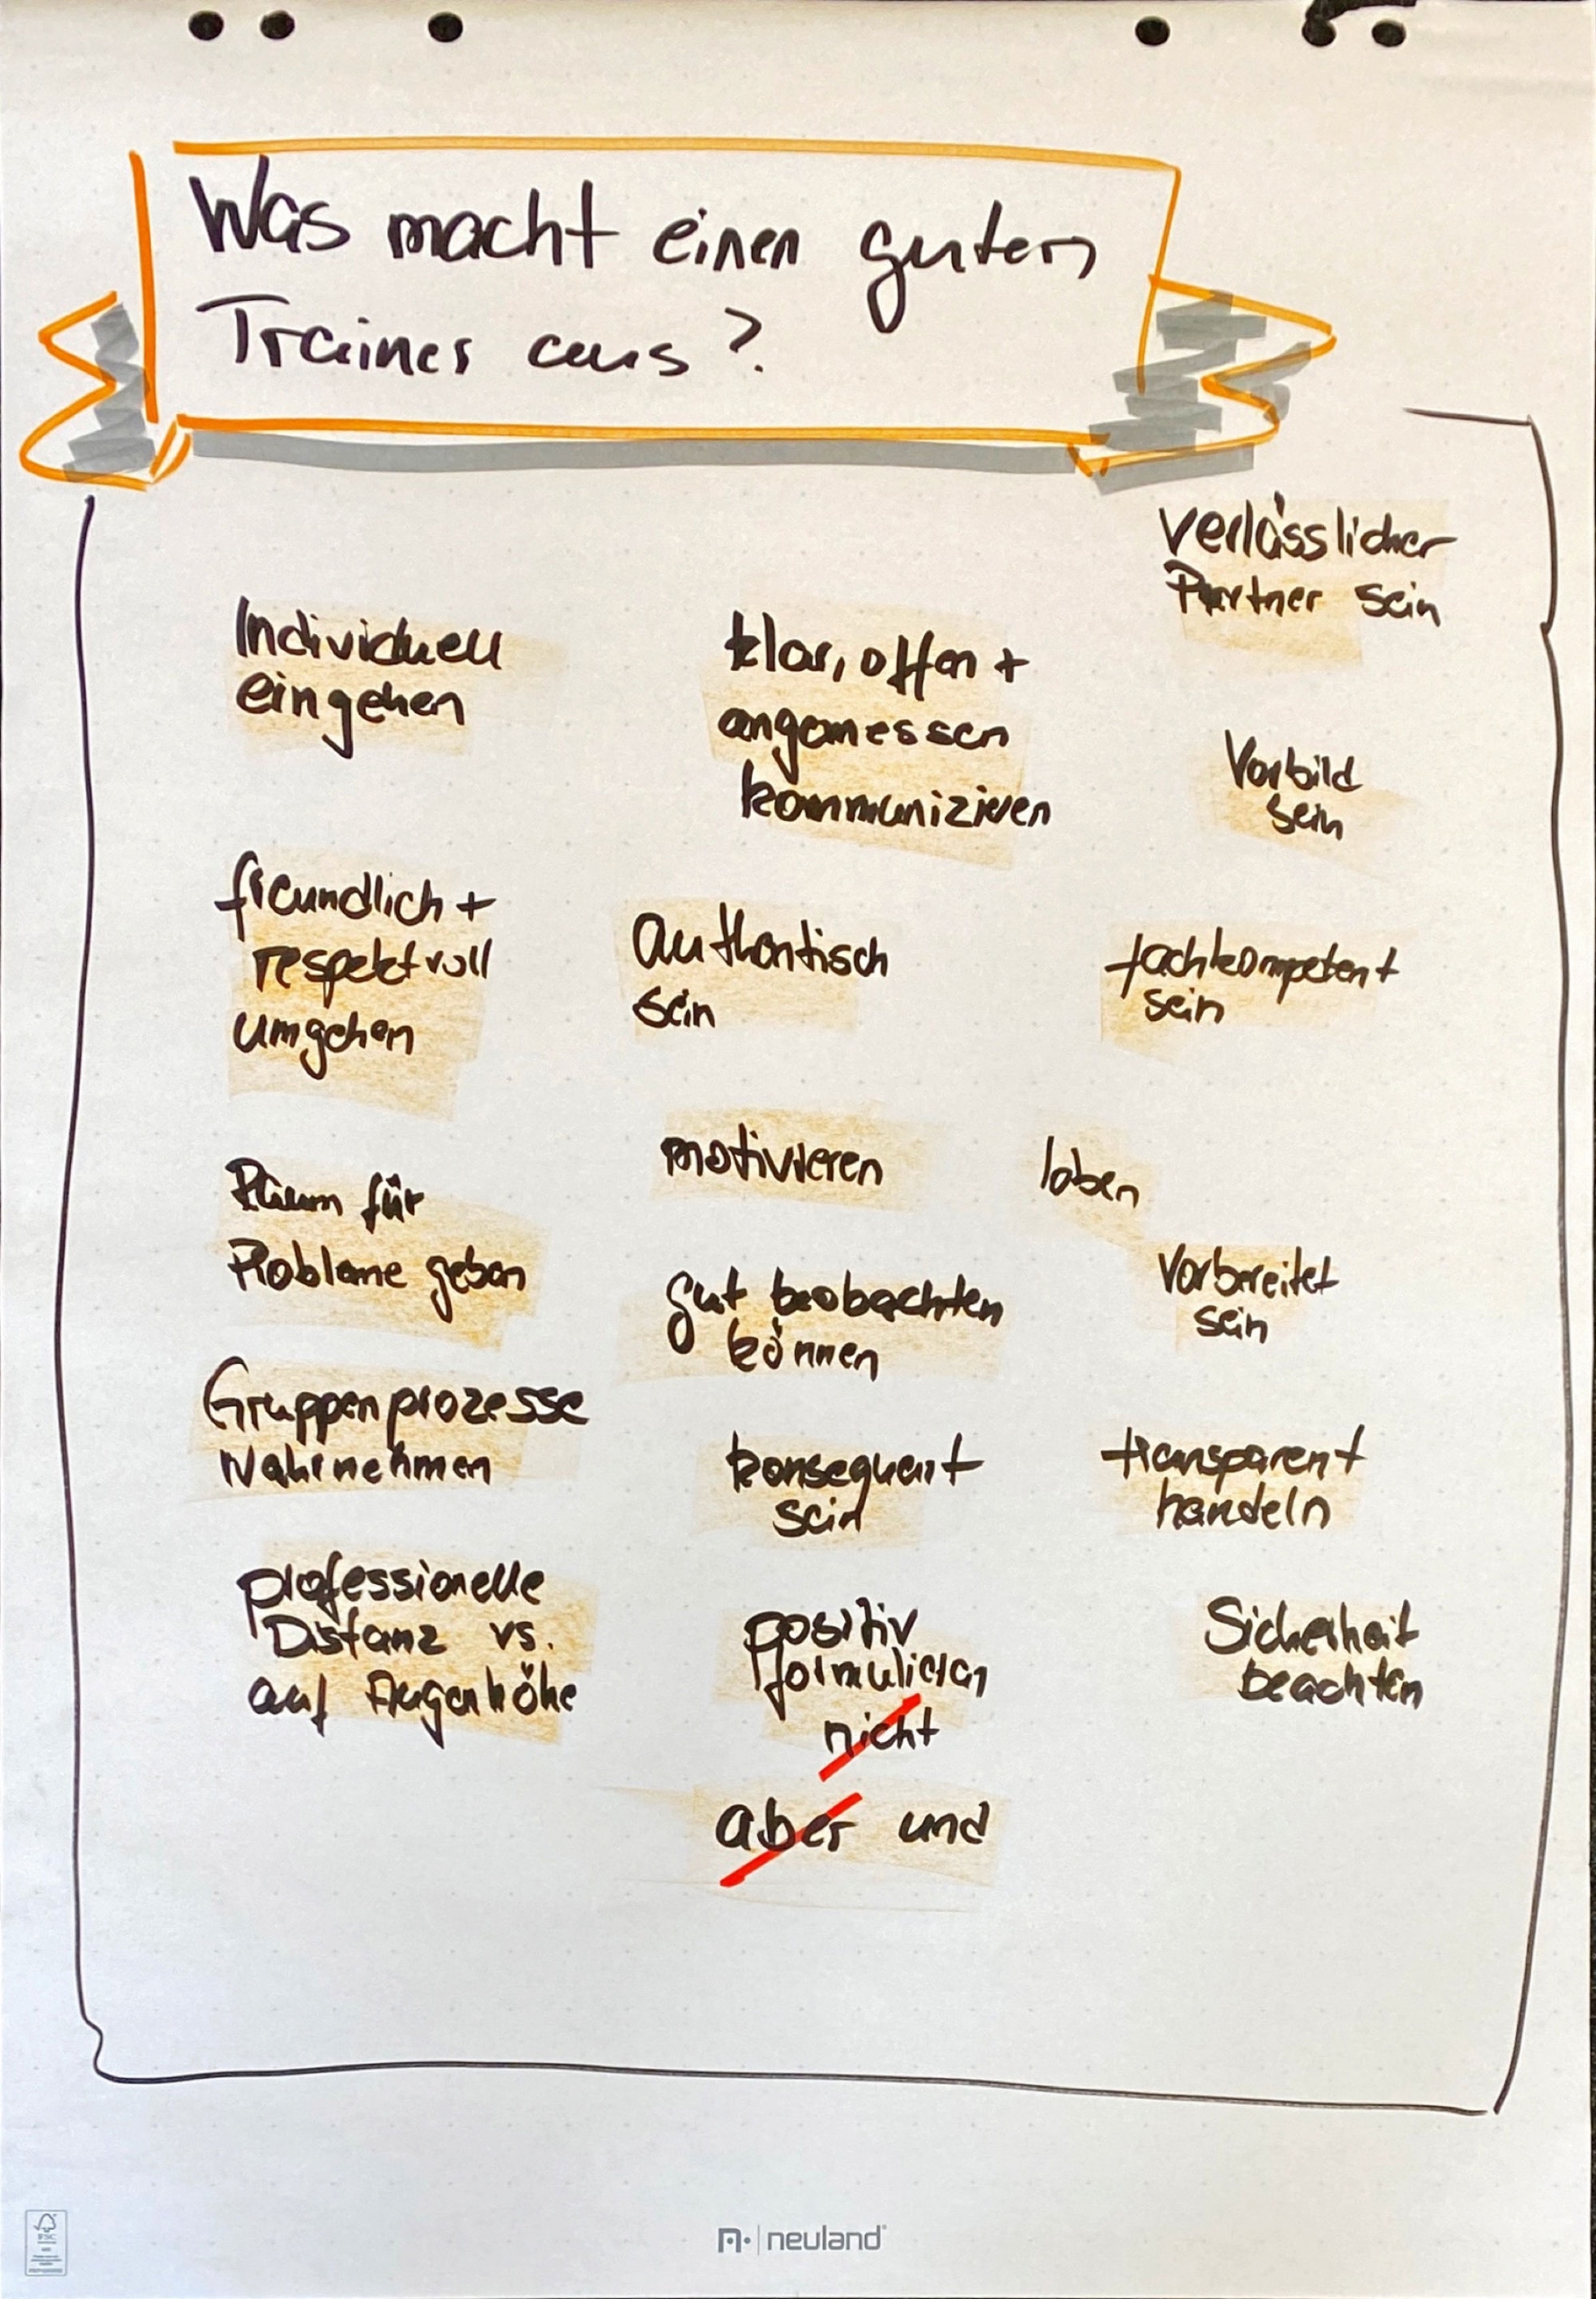 Was macht einen guten
Trainer aus?
Individuell
eingehen
freundlich +
respektvoll
umgehen
Raum für
Probleme geben
Gruppenprozesse
wahrnehmen
professionelle
Distanz vs.
auf Augenhöhe
klar, offen +
angemessen
kommunizieren
authentisch
sein
motivieren
loben
gut beobachten
können
konsequent
sein
positiv
formulieren
nicht
aber und
verlässlicher
Partner sein
Vorbild
sein
fachkompetent
sein
Vorbereitet
sein
transparent
handeln
Sicherheit
beachten
FSC
neuland